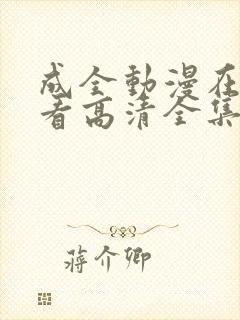 成全動漫在
看高清全集
蔣介卿